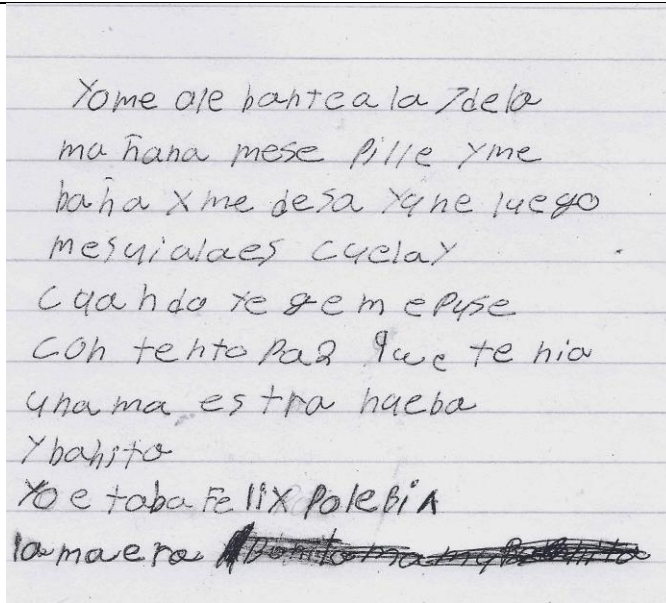 Yo me ale bahte a la 7 de la
ma ñana me se Pille Y me
baña X me desa Yune luego
mesuialaes cuelaY
Cuahdo Yegem ePuse
coh tehto Pa2 que te hia
uhama es tra hueba
Y bohito
Yo e taba Felix PoleBiA
la maera